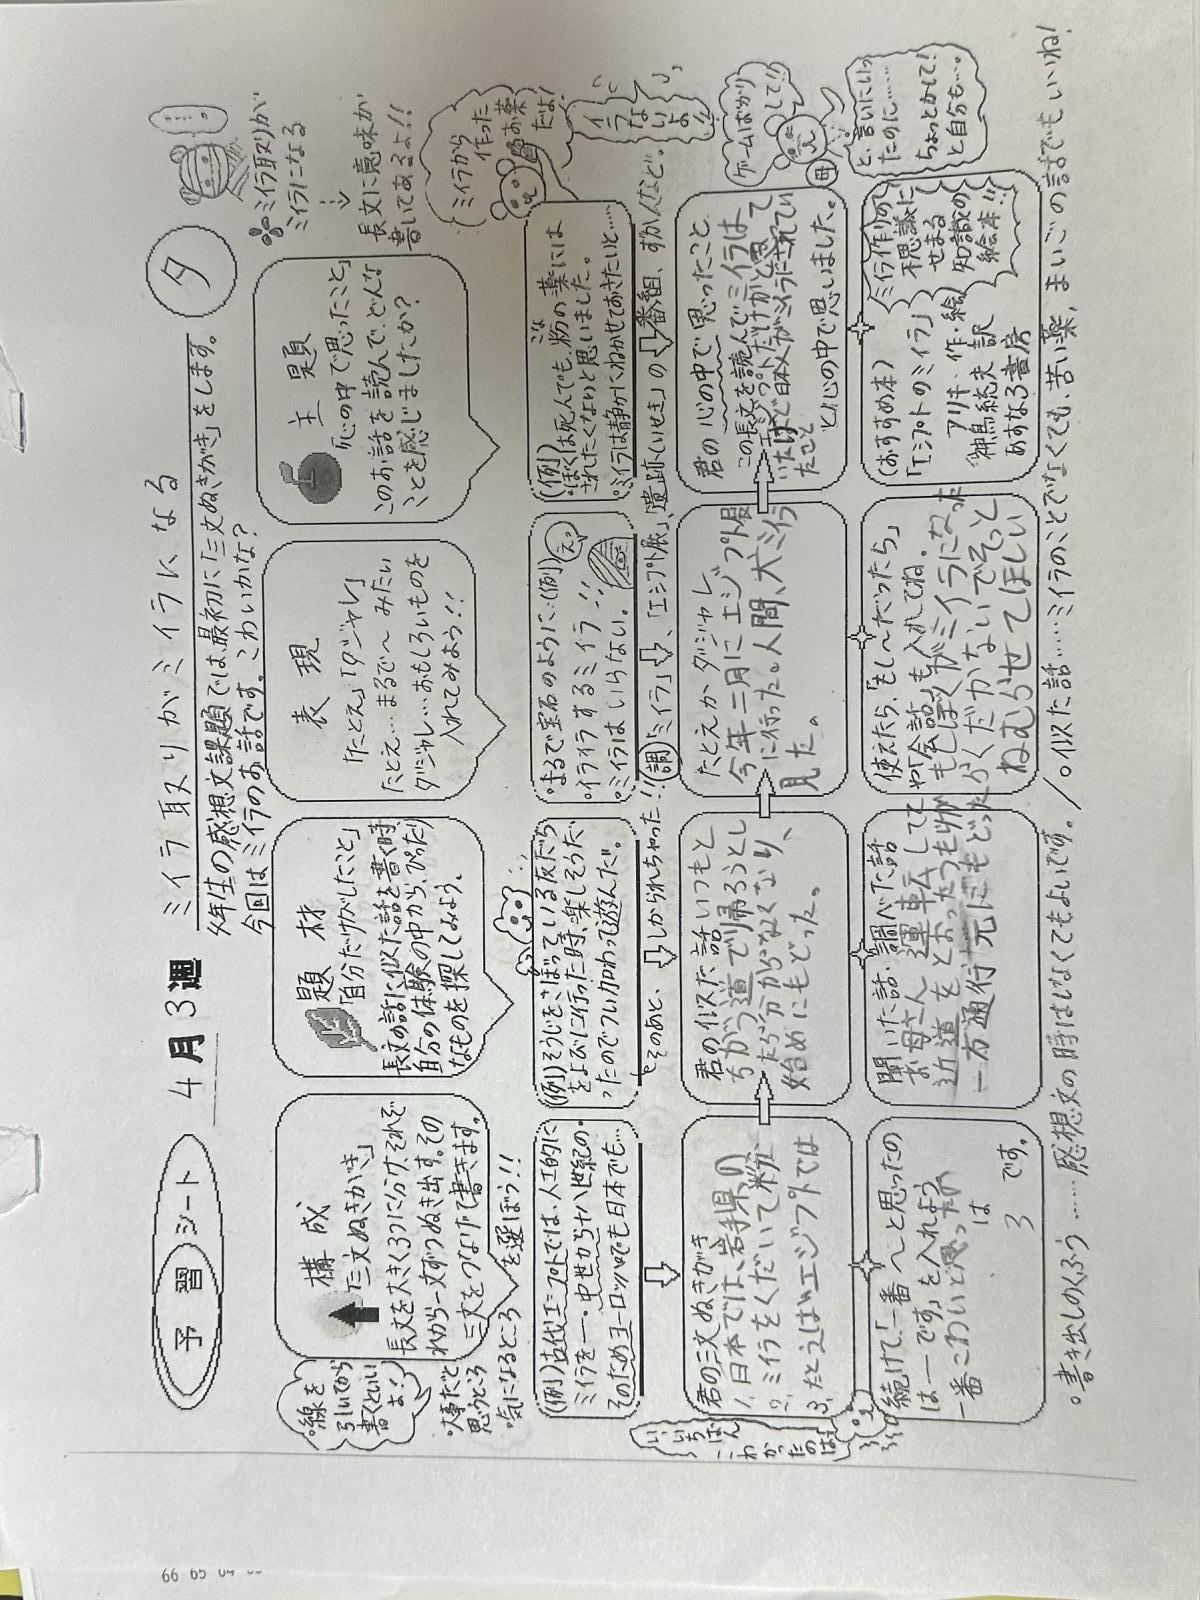 予習シート
4月3週
ミイラ取りがミイラになる
タ
タ年生の感想文課題では、最初に「三文ぬきがき」をします。
今回はミイラのお話です。こわいかな?
ミイラ取りが
ミイラになる
長文に意味が
書いてあるよ!!
構成
「三文ぬきがき」
長文を大きく3つに分け、それぞ
れから一文ずつぬき出す。その
三文をつなげて書きます。
線を
引いてから
書くといい
よ!
・大事だと
思うところ
・気になるところ
を選ぼう!!
題材
「自分だけがしたこと」
長文の話に似た話を書く時
自分の体験の中から、ぴったり
なものを探してみよう。
表現
「たとえ」「ダジャレ」
たとえ…まるで〜みたい
ダジャレ…おもしろいものを
入れてみよう!!
主題
「心の中で思ったこと」
このお話を読んで、どんな
ことを感じましたか?
ミイラから
作った
お薬
だよ!
(例)古代エジプトでは、人工的に
ミイラを一・中世から十八世紀の・
そのためヨーロッパでも日本でも…
(例)そうじをさぼっている友だち
をよびに行った時、楽しそうだ
ったのでつい加わって遊んだ。
そのあと、しかられちゃった!!
・まるで宝石のように(例)
・イライラするミイラ!!
・ミイラはいらない。
えっ
(例)
・ぼくは死んでも、粉の薬には
こな
されたくないと思いました。
・ミイラは静かにねかせておきたいと…
イラ
ない
よ!!
調「ミイラ」、「エジプト展」、「遺跡(いせき)」の番組、ずかんなど。
君の三文ぬきがき
1、日本では、岩手県の
2、ミイラをくだいて粉
3、たとえばエジプトでは
君の似た話 いつもと
ちがう道で帰ろうとし
たら分からなくなり、
始めにもどった。
たとえか ダジャレ
今年二月にエジプト展
に行った。人間、犬、ミイラ
見た。
君の心の中で思ったこと
この長文を読んでミイラは
エジプトだけかと思って
いたけど日本人がミイラにされてい
たこと
と心の中で思しました。
ゲームばかり
して!!
母
と、言いにいっ
たのに……
ちょっとかして!
と自分も…。
いちばん
こわ
かった
のは
続けて、「一番〜と思ったの
は―です」を入れよう
一番こわいと思ったのが
は
3 です。
聞いた話・調べた話
お母さん運転してて
近道をとおったつもりが
一方通行で元にもどった
使えたら、「もし〜だったら」
や「会話」も入れてね。
もしぼくがミイラになった
らくだかないでそっと
ねむらせてほしい
(おすすめ本)
「エジプトのミイラ」
アリキ・作・絵
神鳥統夫 訳
あすなろ書房
ミイラ作りの
不思議に
せまる
知識の
絵本!!!
。書き出しのくふう……感想文の時はしなくてもよいです。/。似た話……ミイラのことでなくても、苦い薬、まいごの話でもいいね!